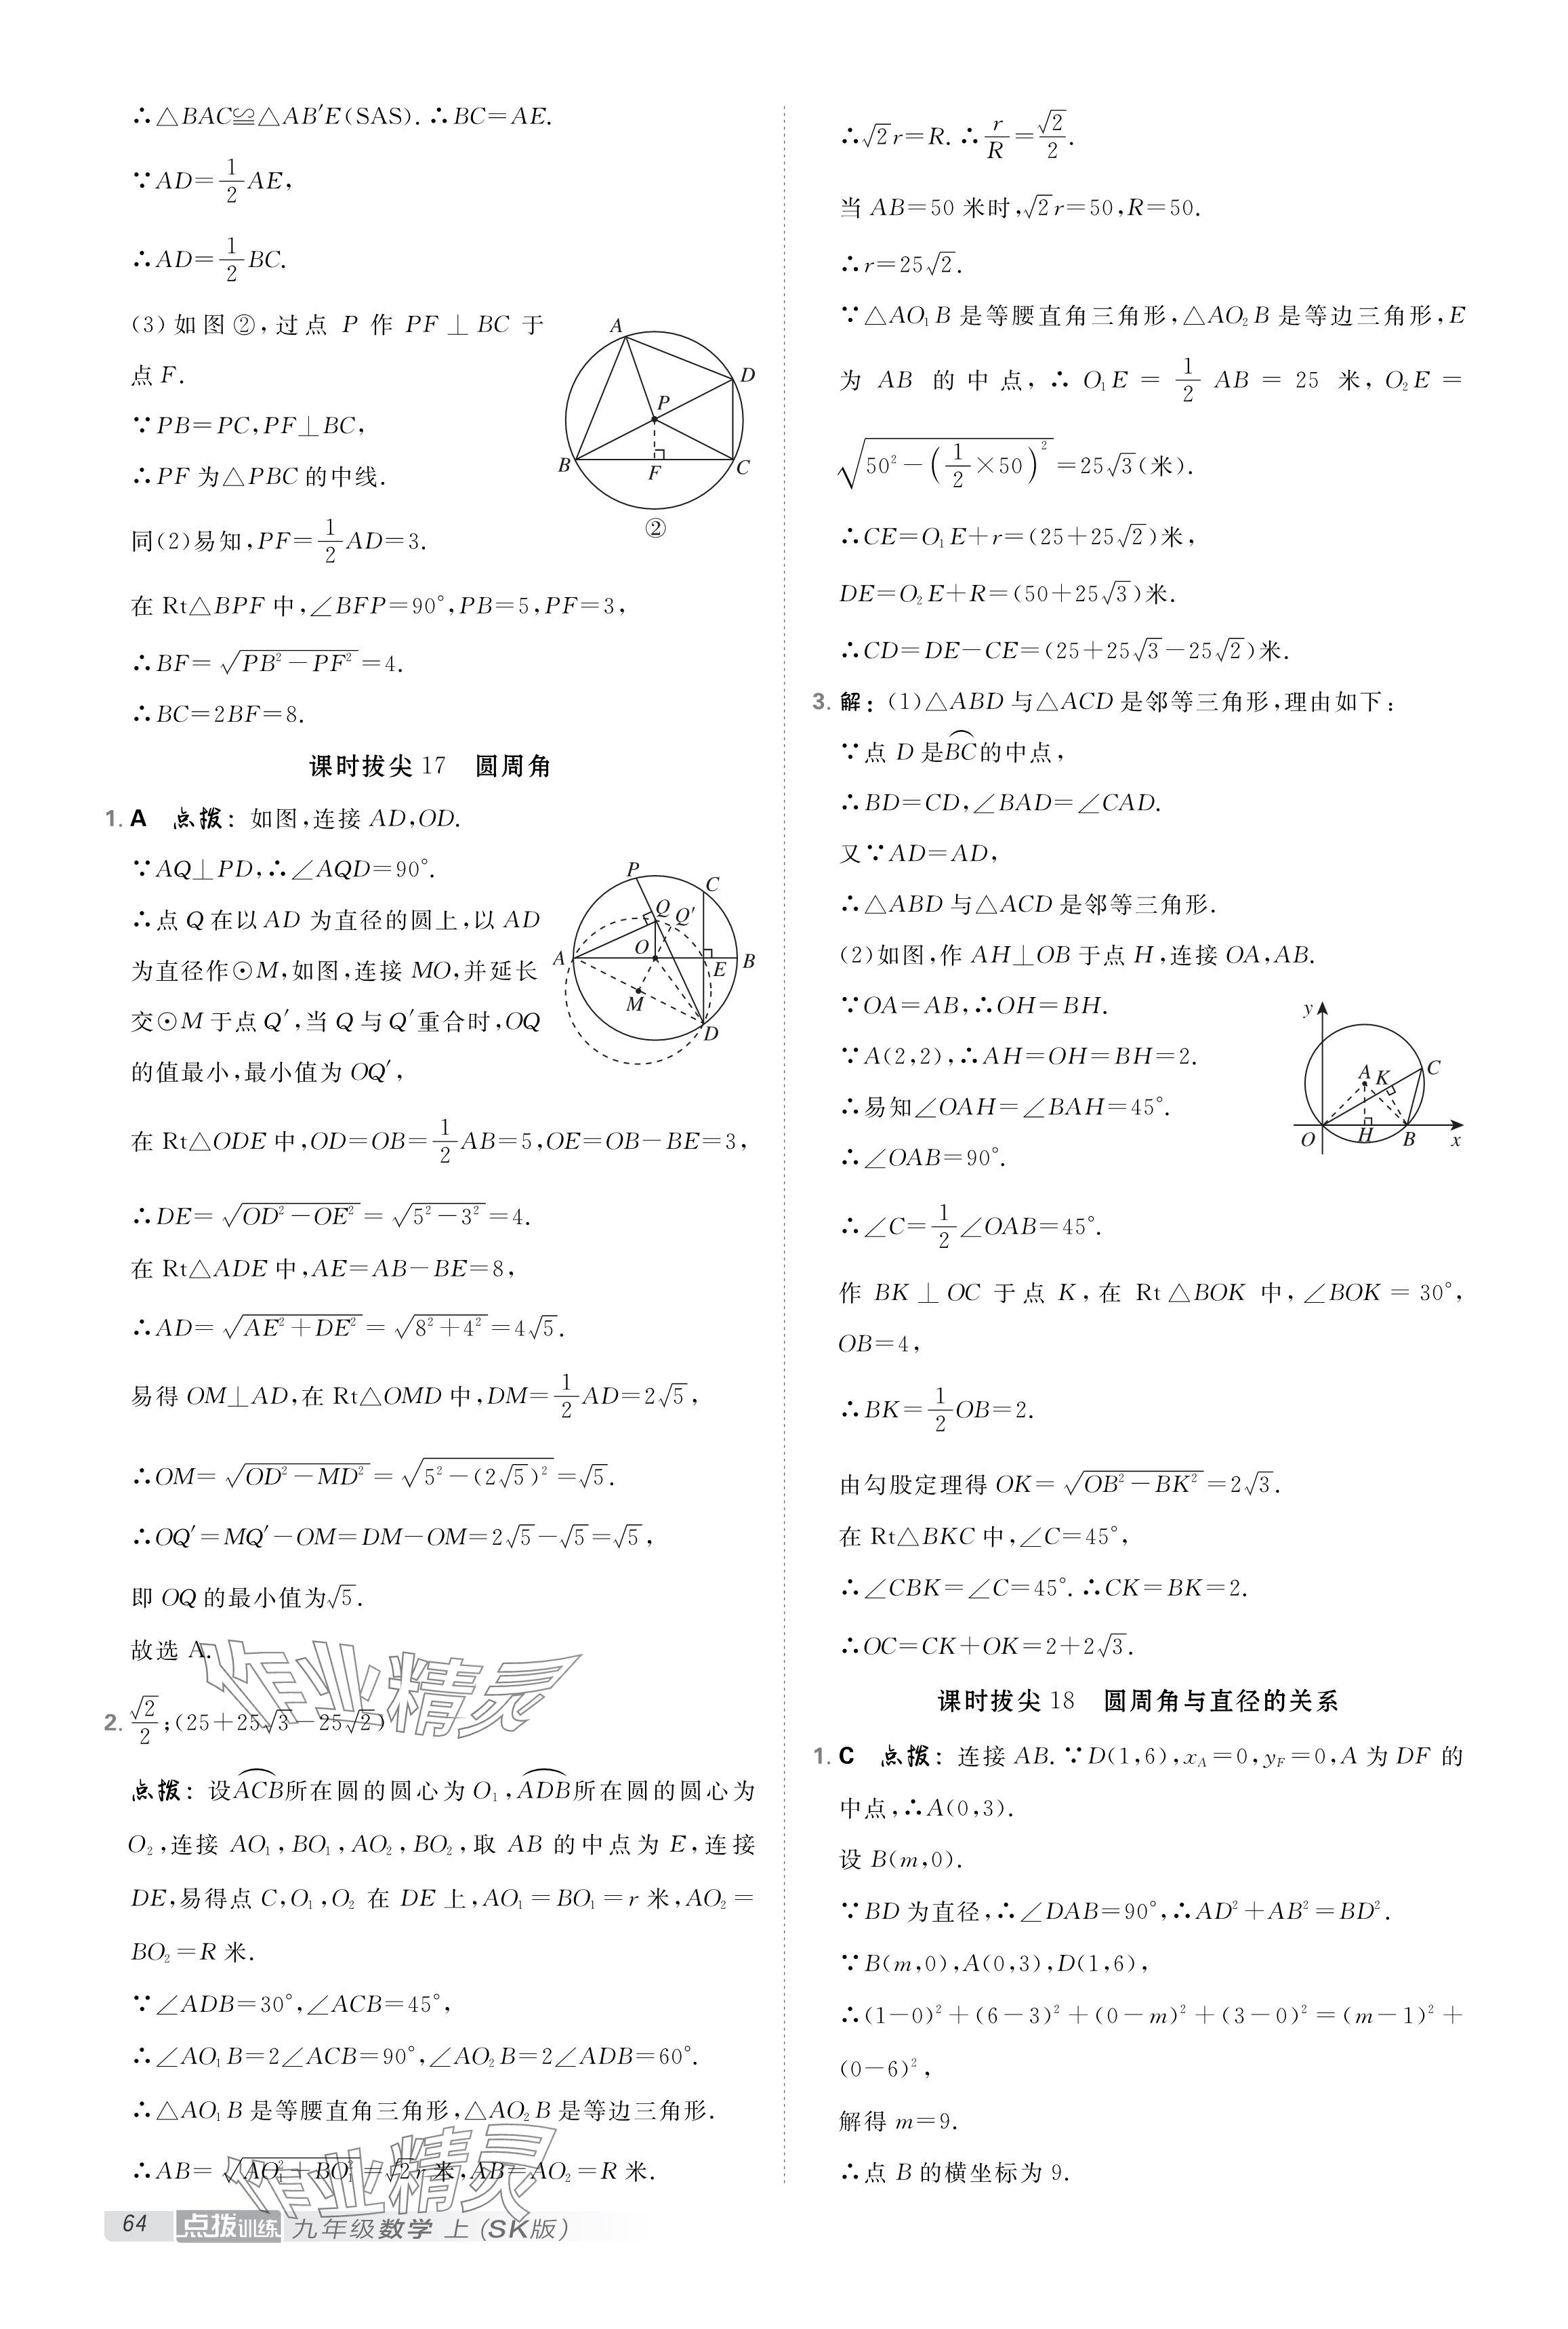 ∴△BAC≌△AB′E(SAS).∴BC=AE.
∵AD=1/2AE,
∴AD=1/2BC.
(3)如图②,过点 P 作 PF⊥BC 于
点F.
∵PB=PC,PF⊥BC,
∴PF为△PBC的中线.
同(2)易知,PF=1/2AD=3.
在 Rt△BPF中,∠BFP=90°,PB=5,PF=3,
∴BF=√(PB²-PF²)=4.
∴BC=2BF=8.
A
D
P
B
F
C
②
课时拔尖17 圆周角
1. A 点拨:如图,连接AD,OD.
∵AQ⊥PD,∴∠AQD=90°.
∴点Q在以AD为直径的圆上,以AD
为直径作⊙M,如图,连接MO,并延长
交⊙M于点Q′,当Q与Q′重合时,OQ
的值最小,最小值为OQ′,
P
C
Q
Q′
A
O
E
B
M
D
在 Rt△ODE中,OD=OB=1/2AB=5,OE=OB-BE=3,
∴DE=√(OD²-OE²)=√(5²-3²)=4.
在 Rt△ADE中,AE=AB-BE=8,
∴AD=√(AE²+DE²)=√(8²+4²)=4√5.
易得OM⊥AD,在 Rt△OMD中,DM=1/2AD=2√5,
∴OM=√(OD²-MD²)=√(5²-(2√5)²)=√5.
∴OQ′=MQ′-OM=DM-OM=2√5-√5=√5,
即OQ的最小值为√5.
故选 A.
2. √2/2;(25+25√3-25√2)
点拨:设⌒ACB所在圆的圆心为O₁,⌒ADB所在圆的圆心为
O₂,连接 AO₁,BO₁,AO₂,BO₂,取 AB 的中点为 E,连接
DE,易得点C,O₁,O₂ 在 DE 上,AO₁=BO₁=r米,AO₂=
BO₂=R米.
∵∠ADB=30°,∠ACB=45°,
∴∠AO₁B=2∠ACB=90°,∠AO₂B=2∠ADB=60°.
∴△AO₁B是等腰直角三角形,△AO₂B是等边三角形.
∴AB=√(AO₁²+BO₁²)=√2r米,AB=AO₂=R米.
∴√2r=R.∴r/R=√2/2.
当AB=50米时,√2r=50,R=50.
∴r=25√2.
∵△AO₁B是等腰直角三角形,△AO₂B是等边三角形,E
为 AB 的中点,∴O₁E=1/2AB=25 米,O₂E=
√(50²-(1/2×50)²)=25√3(米).
∴CE=O₁E+r=(25+25√2)米,
DE=O₂E+R=(50+25√3)米.
∴CD=DE-CE=(25+25√3-25√2)米.
3. 解:(1)△ABD与△ACD是邻等三角形,理由如下:
∵点D是⌒BC的中点,
∴BD=CD,∠BAD=∠CAD.
又∵AD=AD,
∴△ABD与△ACD是邻等三角形.
(2)如图,作AH⊥OB于点H,连接OA,AB.
∵OA=AB,∴OH=BH.
∵A(2,2),∴AH=OH=BH=2.
∴易知∠OAH=∠BAH=45°.
∴∠OAB=90°.
∴∠C=1/2∠OAB=45°.
y
A
K
C
O
H
B
x
作 BK⊥OC 于点 K,在 Rt△BOK 中,∠BOK=30°,
OB=4,
∴BK=1/2OB=2.
由勾股定理得OK=√(OB²-BK²)=2√3.
在 Rt△BKC中,∠C=45°,
∴∠CBK=∠C=45°.∴CK=BK=2.
∴OC=CK+OK=2+2√3.
课时拔尖18 圆周角与直径的关系
1. C 点拨:连接 AB.∵D(1,6),x_A=0,y_F=0,A 为 DF 的
中点,∴A(0,3).
设B(m,0).
∵BD为直径,∴∠DAB=90°,∴AD²+AB²=BD².
∵B(m,0),A(0,3),D(1,6),
∴(1-0)²+(6-3)²+(0-m)²+(3-0)²=(m-1)²+
(0-6)²,
解得m=9.
∴点B的横坐标为9.
作业精灵
作业精灵
64 点拨训练 九年级数学 上(SK版)